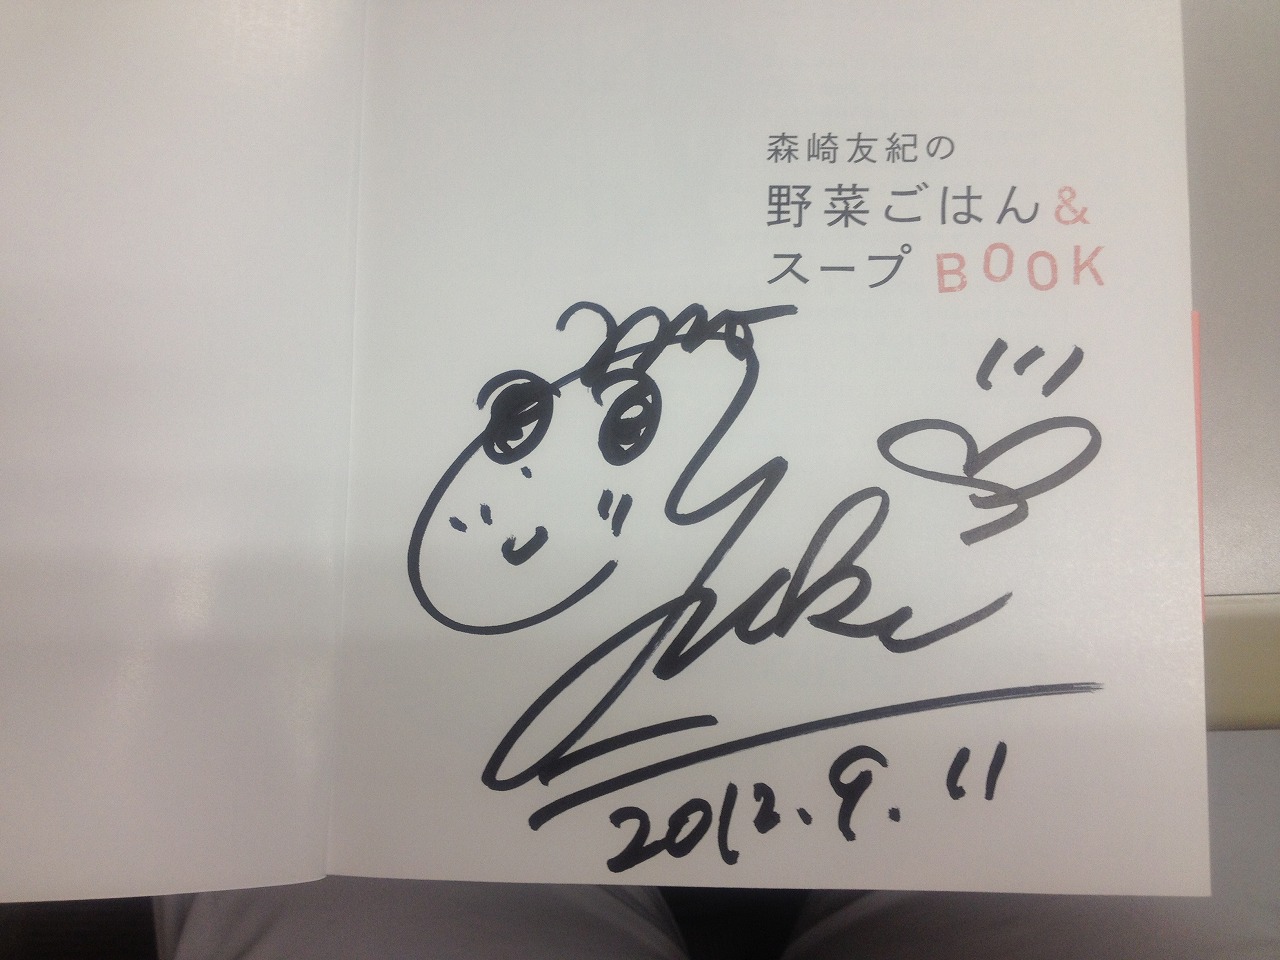 森崎友紀の
野菜ごはん&
スープBOOK
Yuki
2012.9.11